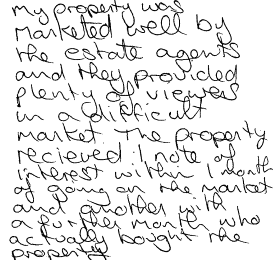 my property was
marketed well by
the estate agents
and they provided
plenty of viewers
in a difficult
market. The property
recieved 1 note of
interest within 1 month
of going on the market
and another with
a further month who
actually bought the
property